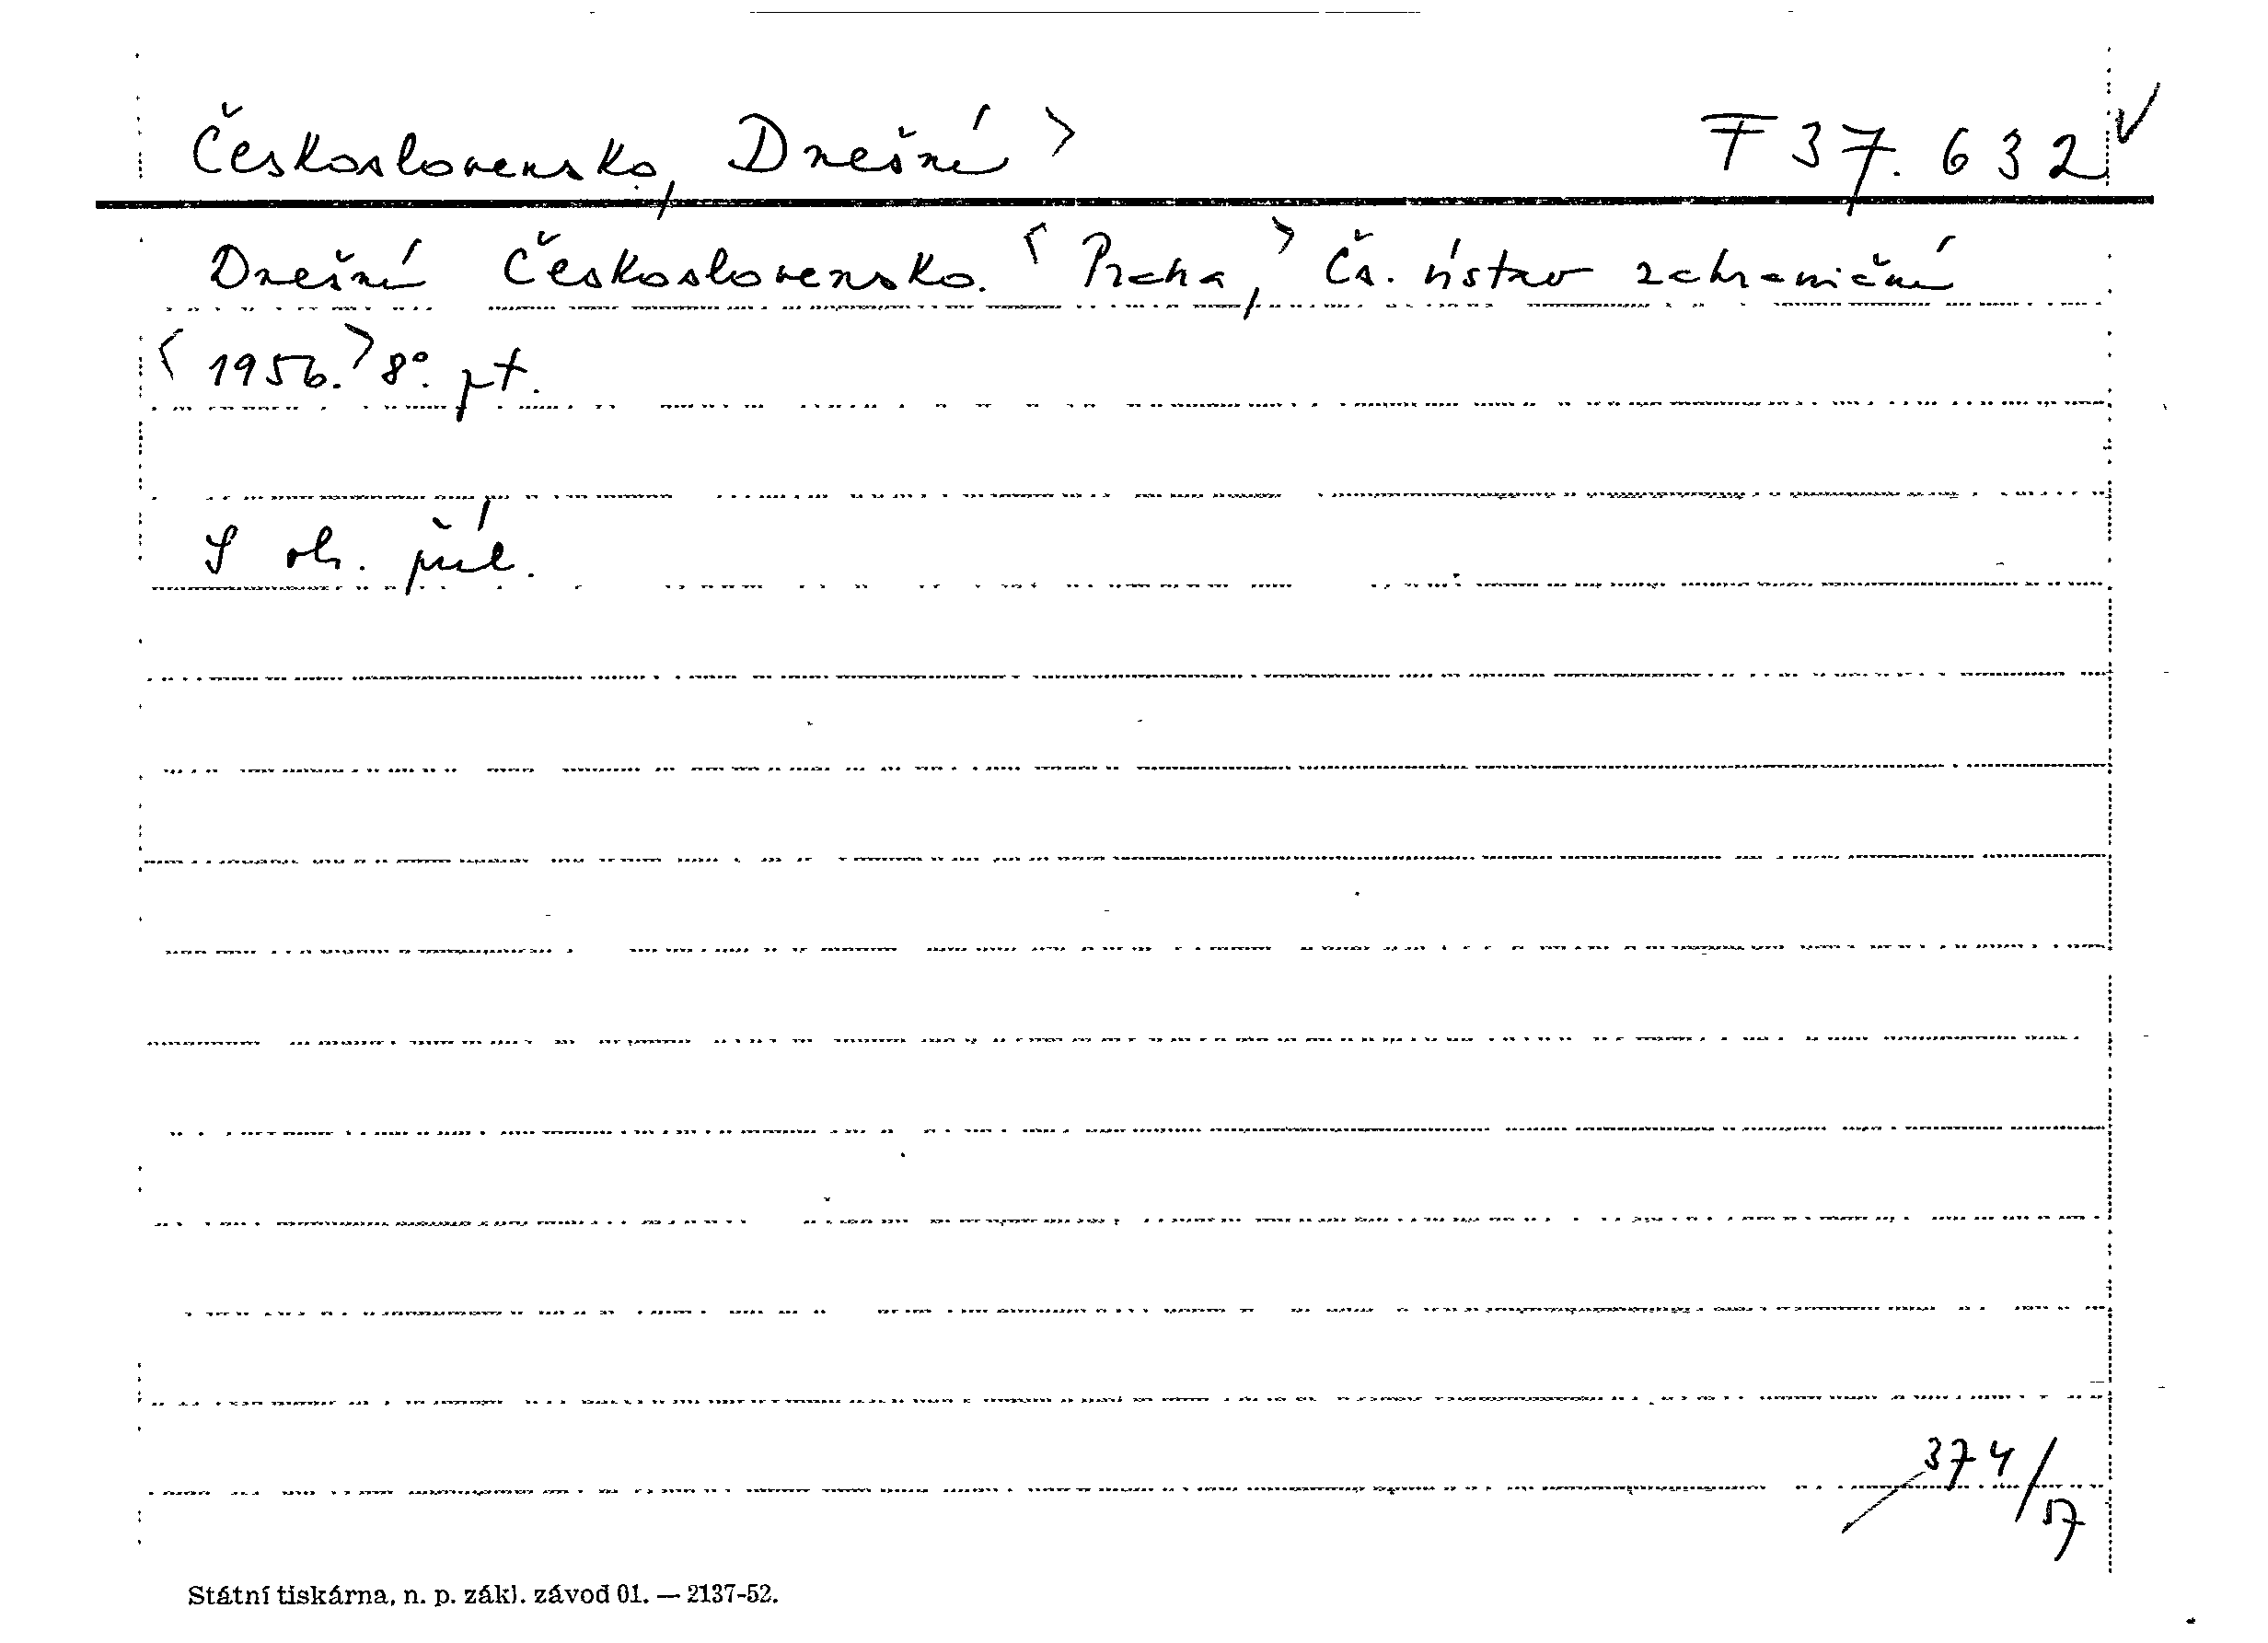 Československo, Dnešní > F 37.632 √
Dnešní Československo. <Praha,> Čs. ústav zahraniční
<1956.> 8°. pt.
S ob. příl.
374/57
Státní tiskárna, n. p. zákl. závod 01. — 2137-52.